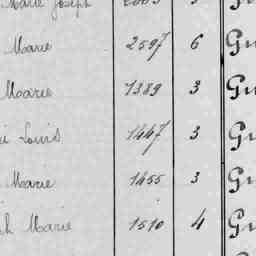 Marie Joseph
Marie 2597 6 Gu
Marie 1389 3 Gu
Louis 1447 3 Gu
Marie 1455 3 Gu
Marie 1510 4 Gu